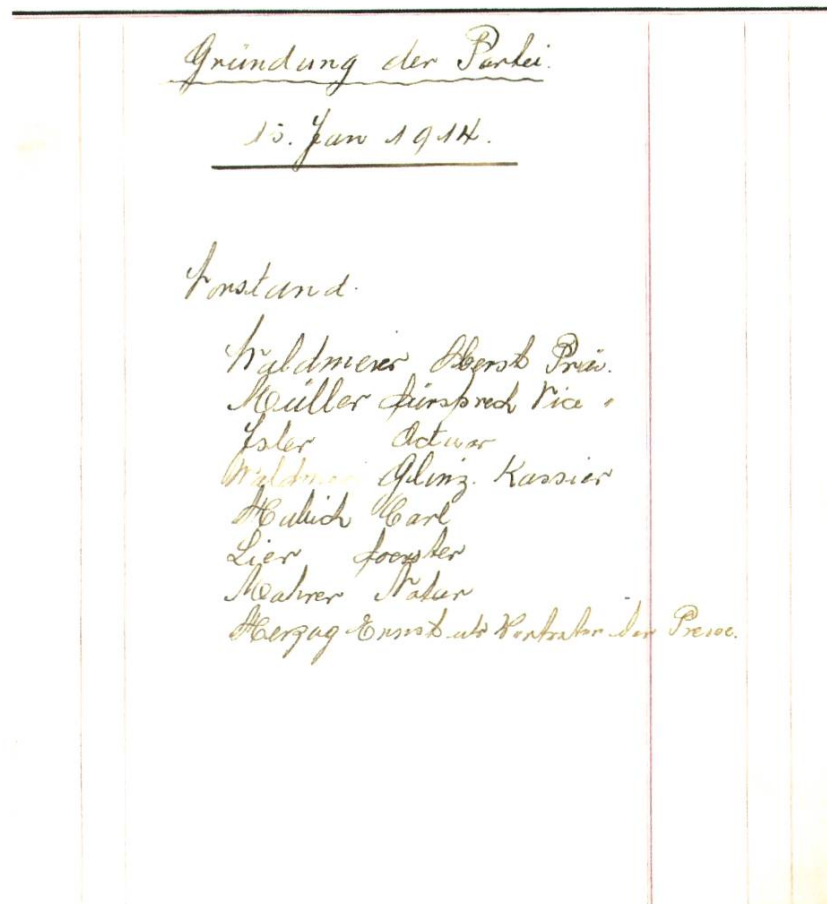 Gründung der Partei.
15. Jan 1914.
Vorstand.
Waldmeier Oberst Präs.
Müller Fürsprech Vice "
Isler Actuar
Waldmei Glinz. Kassier
Carl
Lier Foerster
Mahrer Notar
Herzog Ernst als Vertreter der Presse.